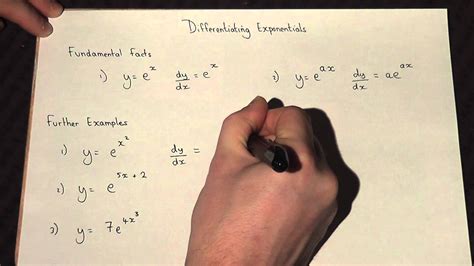 Differentiating Exponentials
Fundamental Facts
1) y = e^x dy/dx = e^x 2) y = e^{ax} dy/dx = ae^{ax}
Further Examples
1) y = e^{x^2} dy/dx =
2) y = e^{5x + 2}
3) y = 7e^{4x^3}